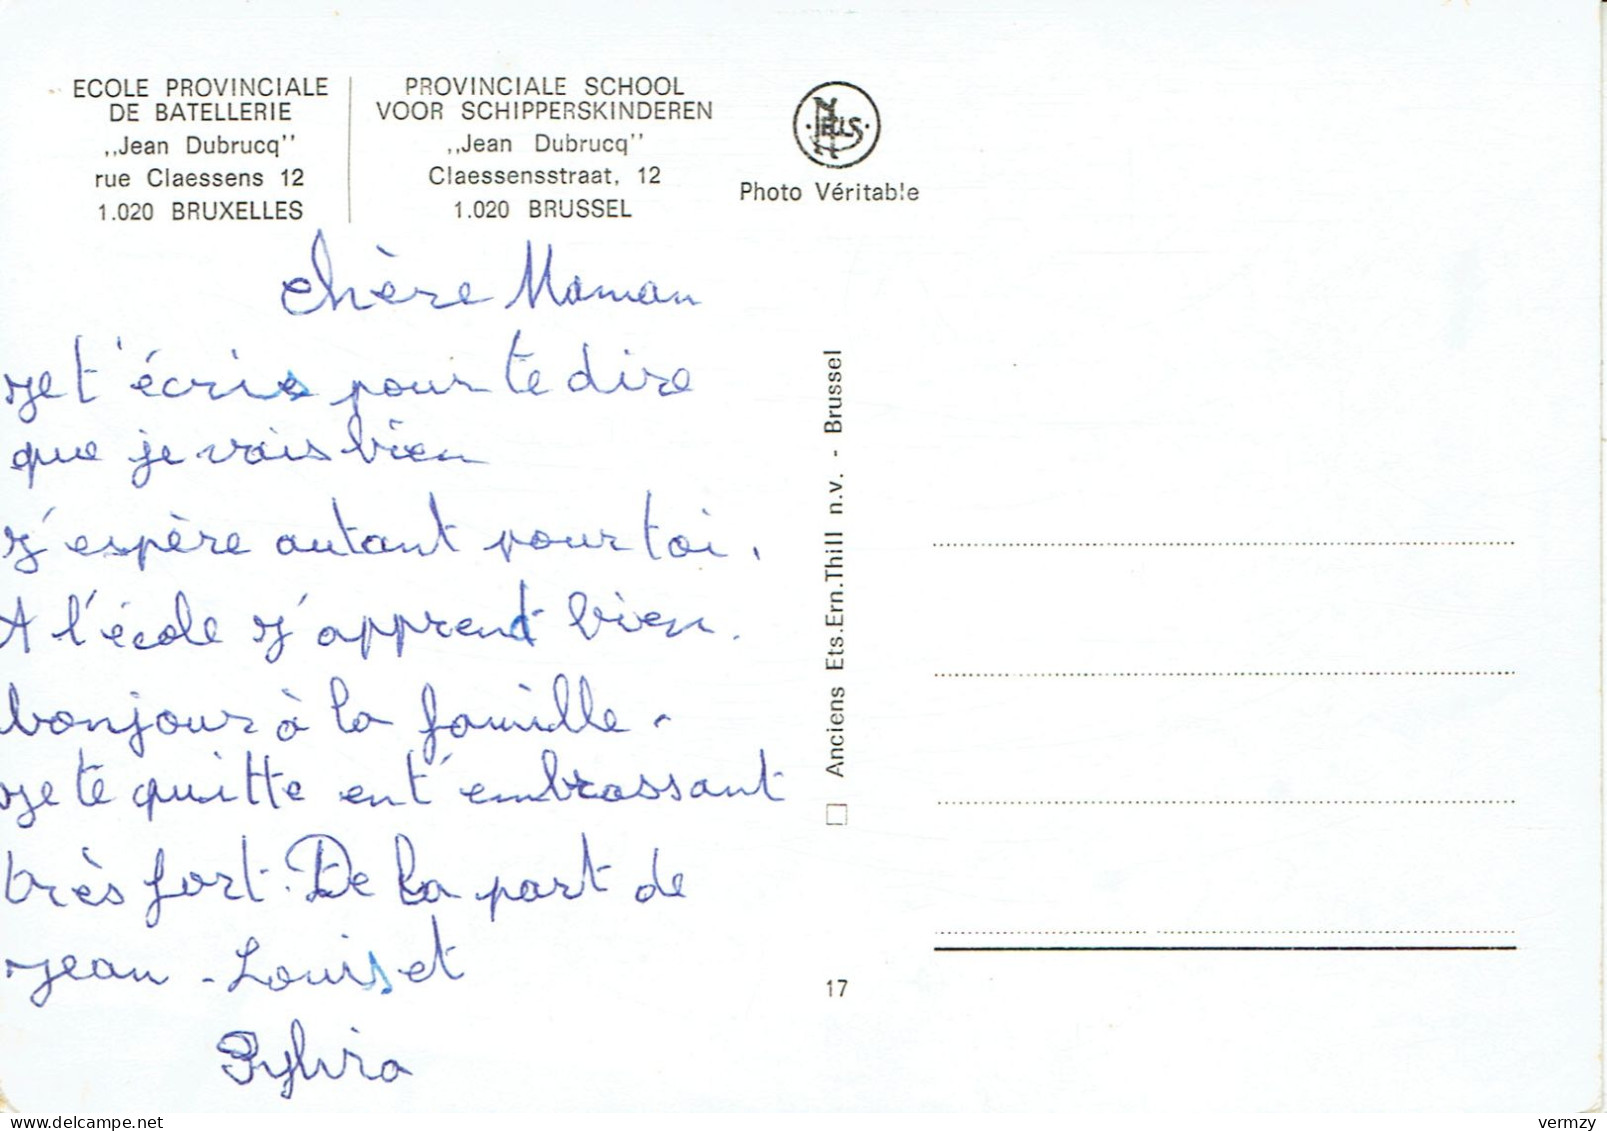 ECOLE PROVINCIALE
DE BATELLERIE
,,Jean Dubrucq"
rue Claessens 12
1.020 BRUXELLES
PROVINCIALE SCHOOL
VOOR SCHIPPERSKINDEREN
,,Jean Dubrucq"
Claessensstraat, 12
1.020 BRUSSEL
NELS
Photo Véritable
chère Maman
je t'écris pour te dire
que je vais bien
j'espère autant pour toi.
A l'école j'apprend bien.
bonjour à la famille.
je te quitte en t'embrassant
très fort. De la part de
jean-Louis et
Sylvia
Anciens Ets.Ern.Thill n.v. - Brussel
17
delcampe.net
vermzy